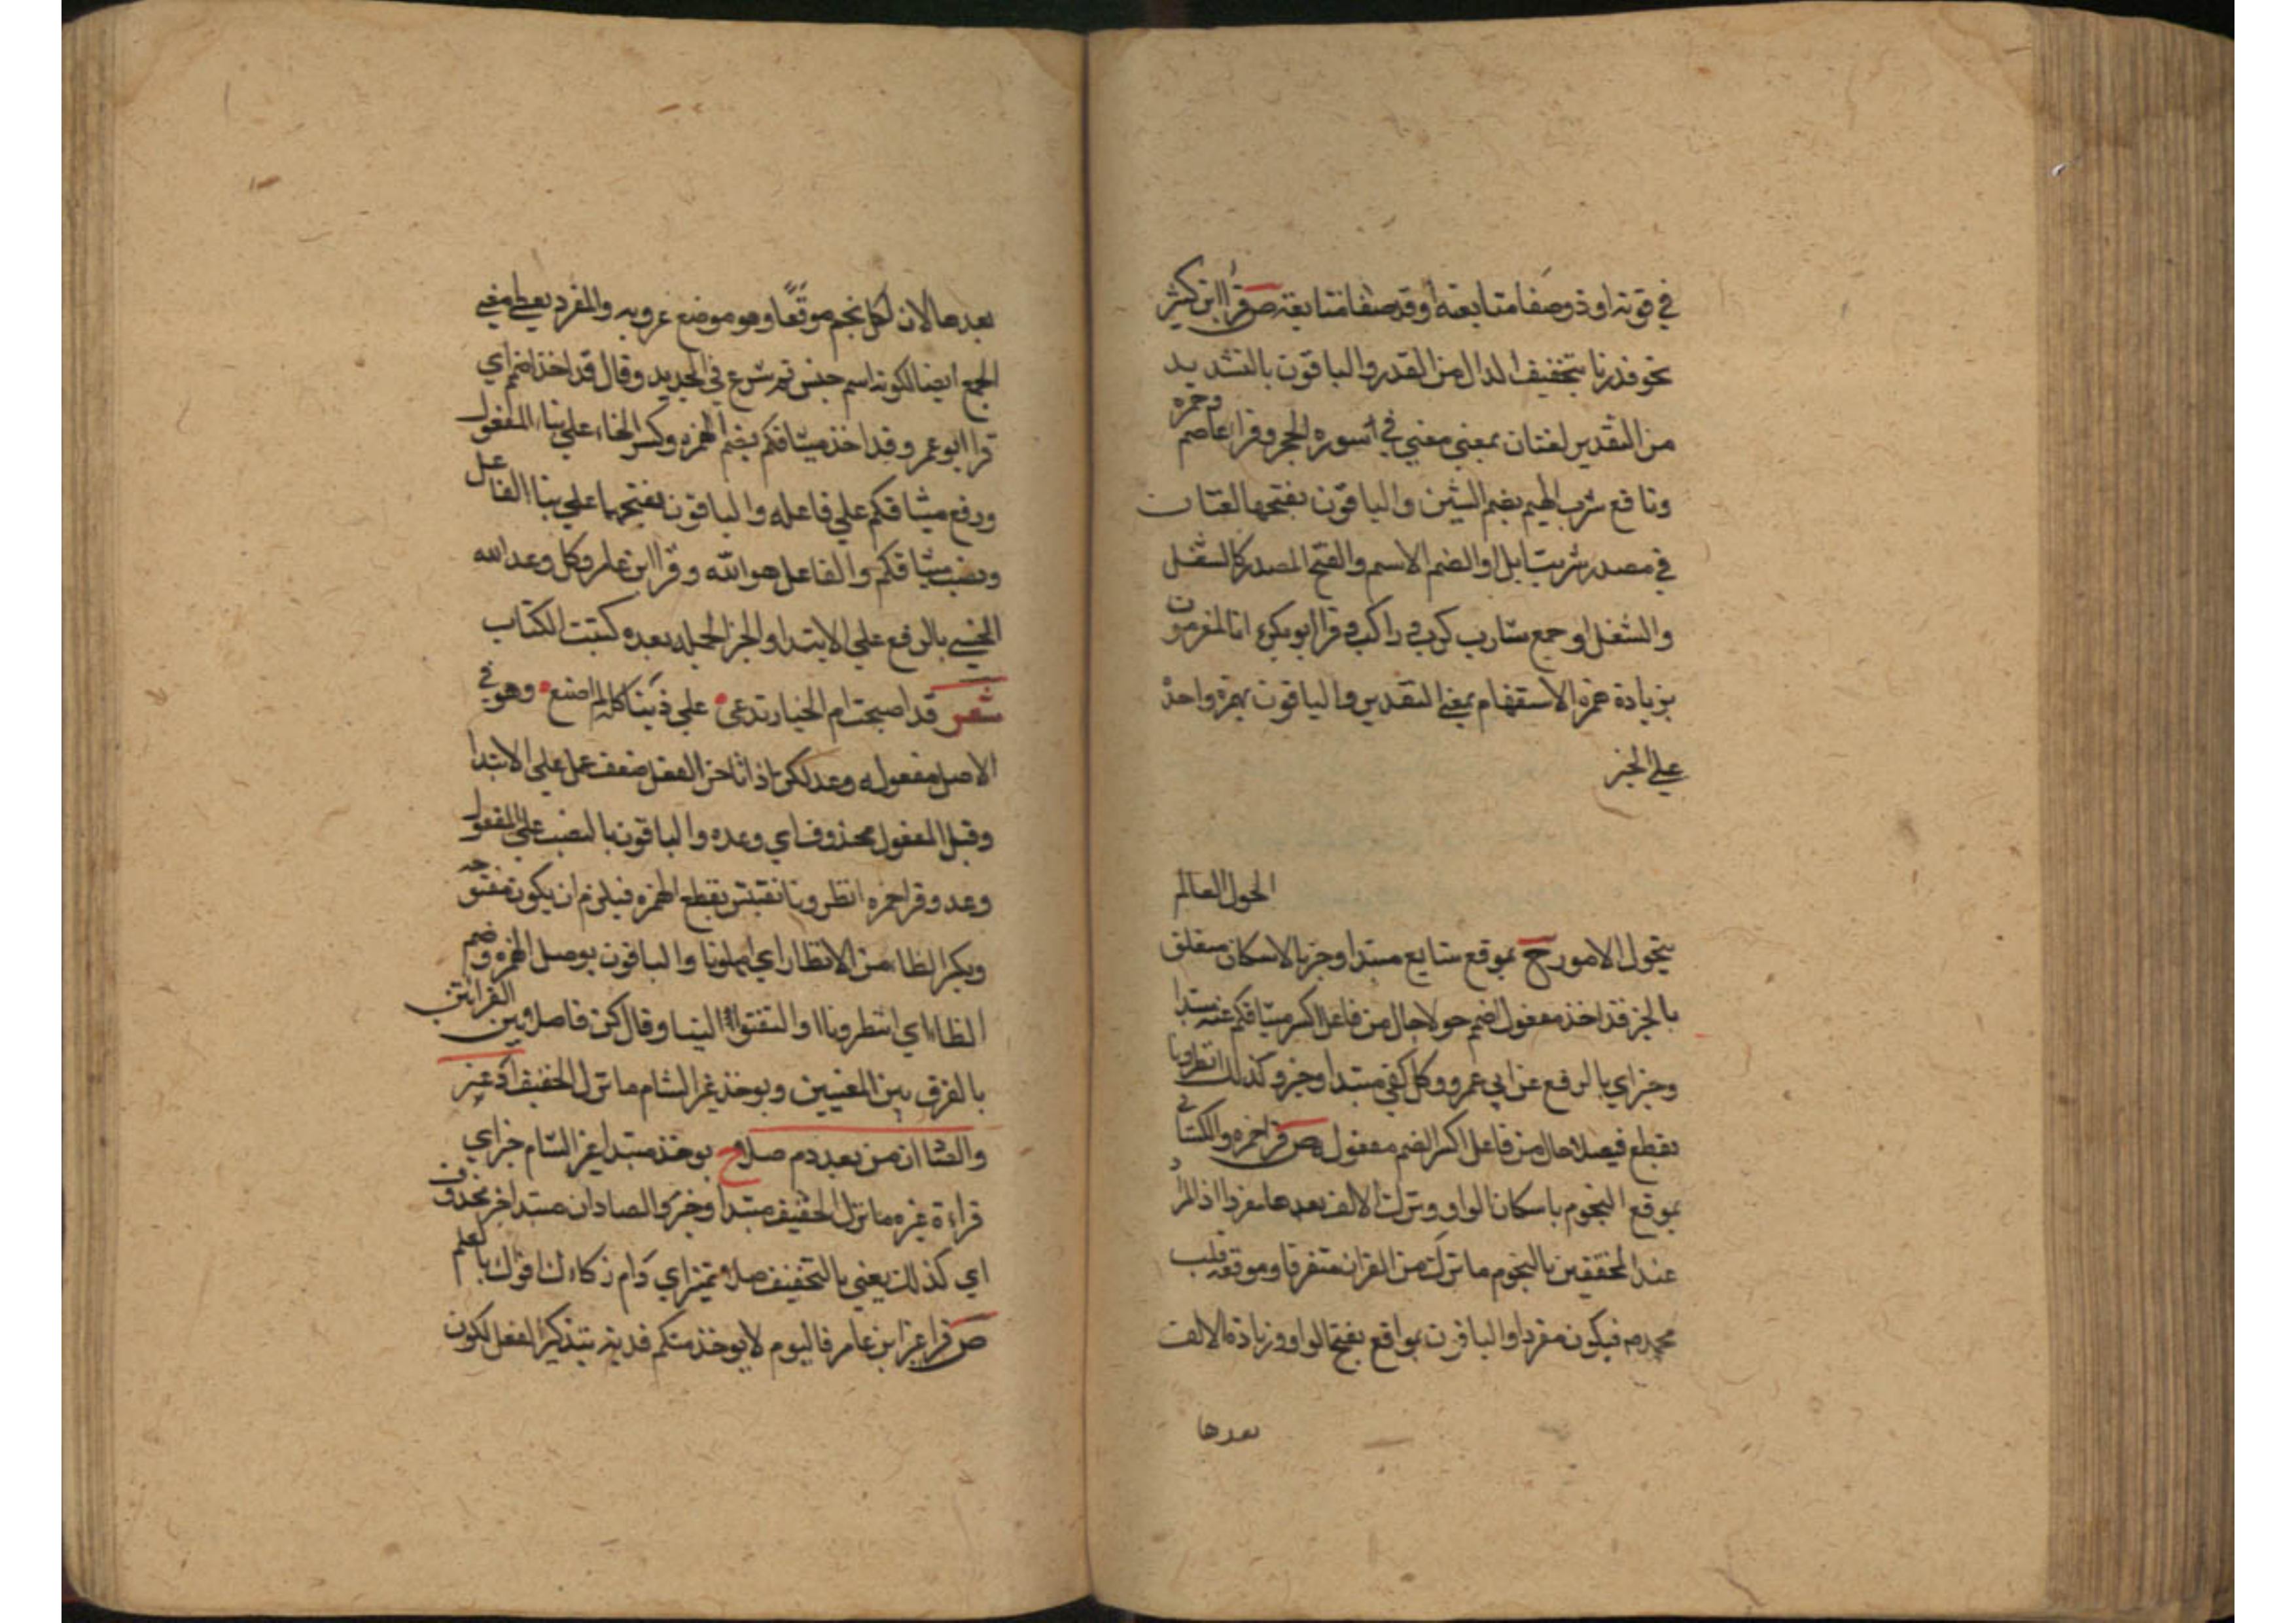 في قوته او ذو وصفا متابعة او قد صفا متابعة ص قرا ابن كثير
نحو قدرنا بتخفيف الدال من القدر والباقون بالتشديد
من التقدير لغتان بمعني مضي في سورة الحجر وقرا عاصم وحمزه
ونافع شرب الهيم بضم الشين والباقون بفتحها لغتان
في مصدر شربت ابل او الضم الاسم والفتح المصدر كالشغل
والشغل او جمع شارب كركب في راكب وقرا ابو بكر ءانا لمغرمون
بزيادة همزه الاستفهام بمعني التقدير والباقون بهمزة واحدة
علي الخبر
الحول العالم
بتحول الامور ح بموقع شايع مبتدا وخبر بالاسكان متعلق
بالخبر قد اخذ مفعول اضمم حولا حال من فاعل اكسر ميثاقكم عنه مبتدا
وخبر اي بالرفع عن ابي عمرو وكل كفي مبتدا وخبر وكذلك انظرونا
بقطع فيصلا حال من فاعل اكسر الضم مفعوله ص قرا حمزه والكسائي
بموقع النجوم باسكان الواو وترك الالف بعدها مفردا اذ المراد
عند المحققين بالنجوم ما نزل من القران متفرقا وموقعه قلب
محمدم فيكون مفردا والباقون بمواقع بفتح الواو وزيادة الالف
بعدها
بعدها لان لكل نجم موقعًا وهو موضع غروبه والمفرد يعطي معني
الجمع ايضا لكونه اسم جنس ثم شرع في الحديد وقال قد اخذ اضمم اي
قرا ابو عمرو قد اخذ ميثاقكم بضم الهمزه وكسر الخاء علي بناء المفعول
ورفع ميثاقكم علي فاعله والباقون بفتحهما علي بنا الفاعل
ونصب ميثاقكم والفاعل هو الله وقرا ابن عامر وكل وعد الله
الحسني بالرفع علي الابتدا والخبر الجمله بعده كبيت الكتاب
شعر قد اصبحت ام الخيار تدعي علي ذنبا كله لم اصنع وهو في
الاصل مفعول له وعد لكن اذا تاخر الفعل ضعف عمل علي الابتدا
وقبل المفعول محذوف اي وعده والباقون بالنصب علي المفعول
وعد وقرا حمزه انظرونا نقتبس بقطع الهمزه فيلزم ان يكون مفتوحه
وبكسر الظاء من الانظار اي امهلونا والباقون بوصل الهمزه وضم
الظاء اي انتظرونا او التفتوا الينا وقال كن فاصلا بين القرائتين
بالفرق بين المعنيين ويوخذ غير الشام ما نزل الخفيف اذ عز
والصادان من بعد دم صلا ح يوخذ مبتدا غير الشام خبر اي
قراءة غيره ما نزل الخفيف مبتدا وخبر والصادان مبتدا خبر محذوف
اي كذلك يعني بالتخفيف صلا تميز اي دام ذكاءك اقولك بالعلم
ص قرا غير ابن عامر فاليوم لا يوخذ منكم فدية بتذكير الفعل لكون